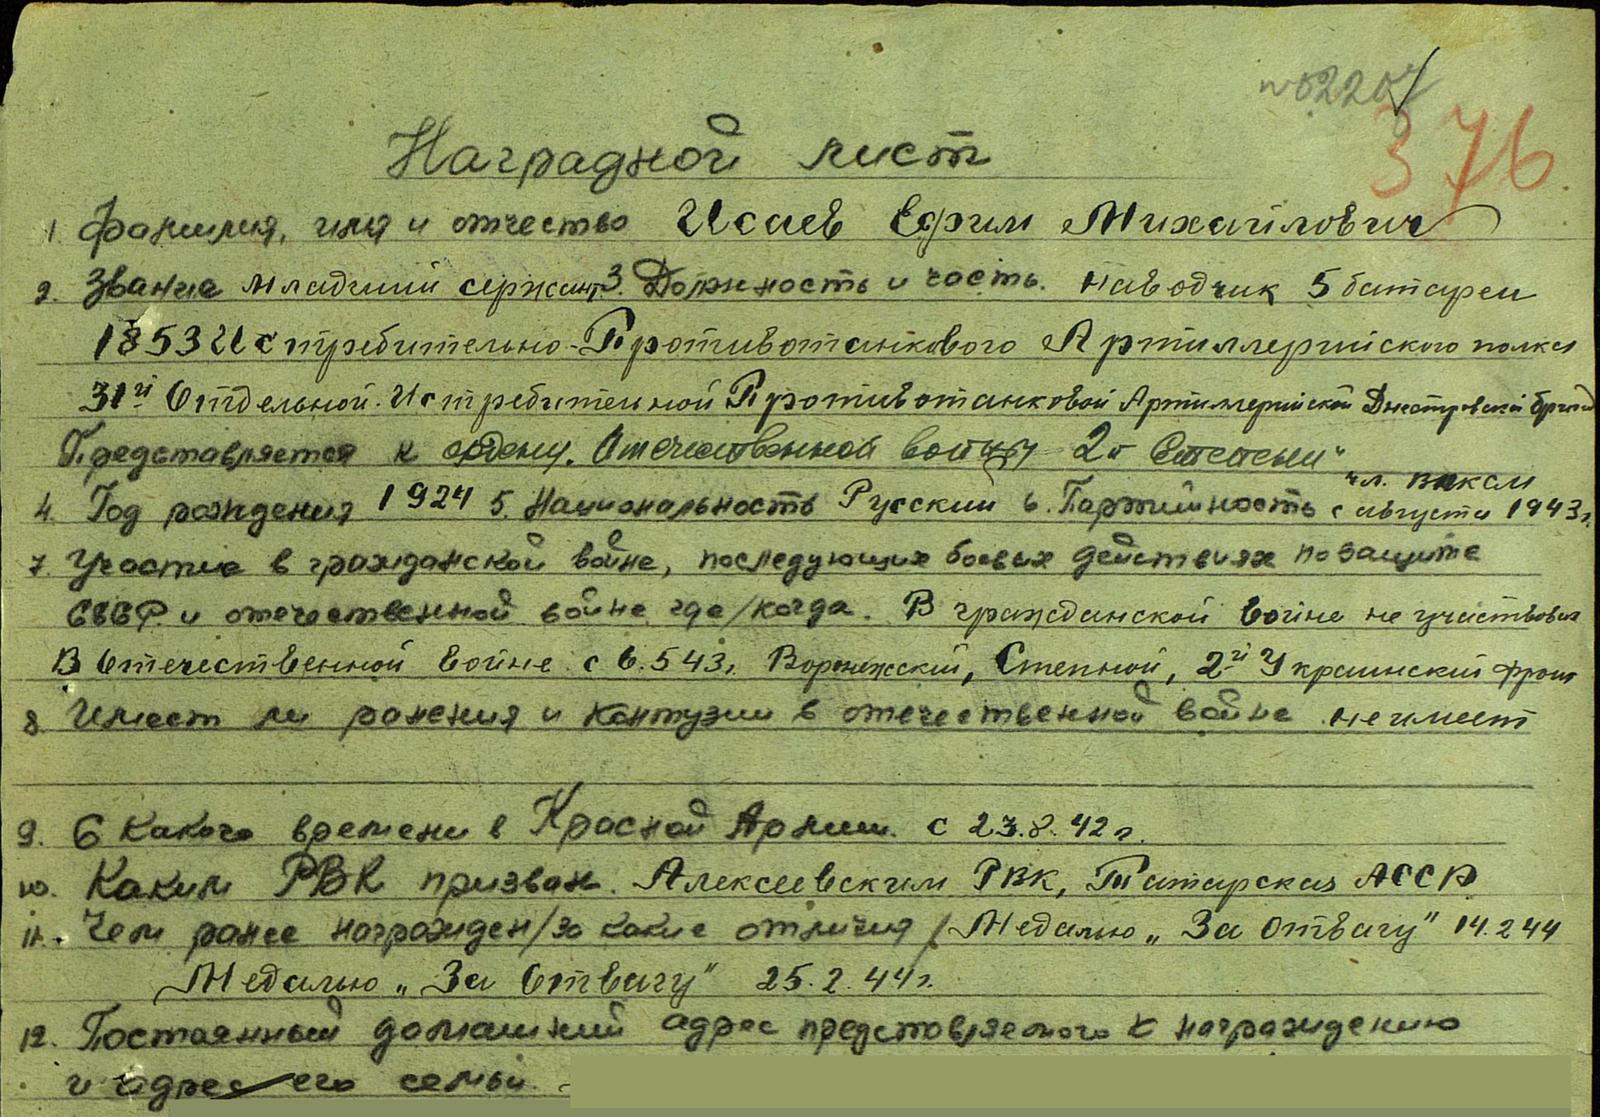 №02207
376
Наградной лист
1. Фамилия, имя и отчество Исаев Ефим Михайлович
2. Звание младший сержант 3. Должность и часть. наводчик 5 батареи
1853 Истребительно-Противотанкового Артиллерийского полка
31й Отдельной Истребительной Противотанковой Артиллерийской Днестровской бригады
Представляется к ордену. Отечественной войны 2й Степени"
чл. ВЛКСМ
4. Год рождения 1924 5. Национальность Русский 6. Партийность с августа 1943г.
7. Участие в гражданской войне, последующих боевых действиях по защите
СССР и отечественной войне где/когда. В гражданской войне не участвовал
В Отечественной войне с 6.5 43г. Воронежский, Степной, 2й Украинский фронт
8. Имеет ли ранения и контузии в отечественной войне не имеет
9. С какого времени в Красной Армии. с 23.8.42г.
10. Каким РВК призван. Алексеевским РВК, Татарская АССР
11. Чем ранее награжден/за какие отличия/ Медалью „За Отвагу" 14.2 44
Медалью „За Отвагу" 25.2.44г.
12. Постоянный домашний адрес представляемого к награждению
и адрес его семьи